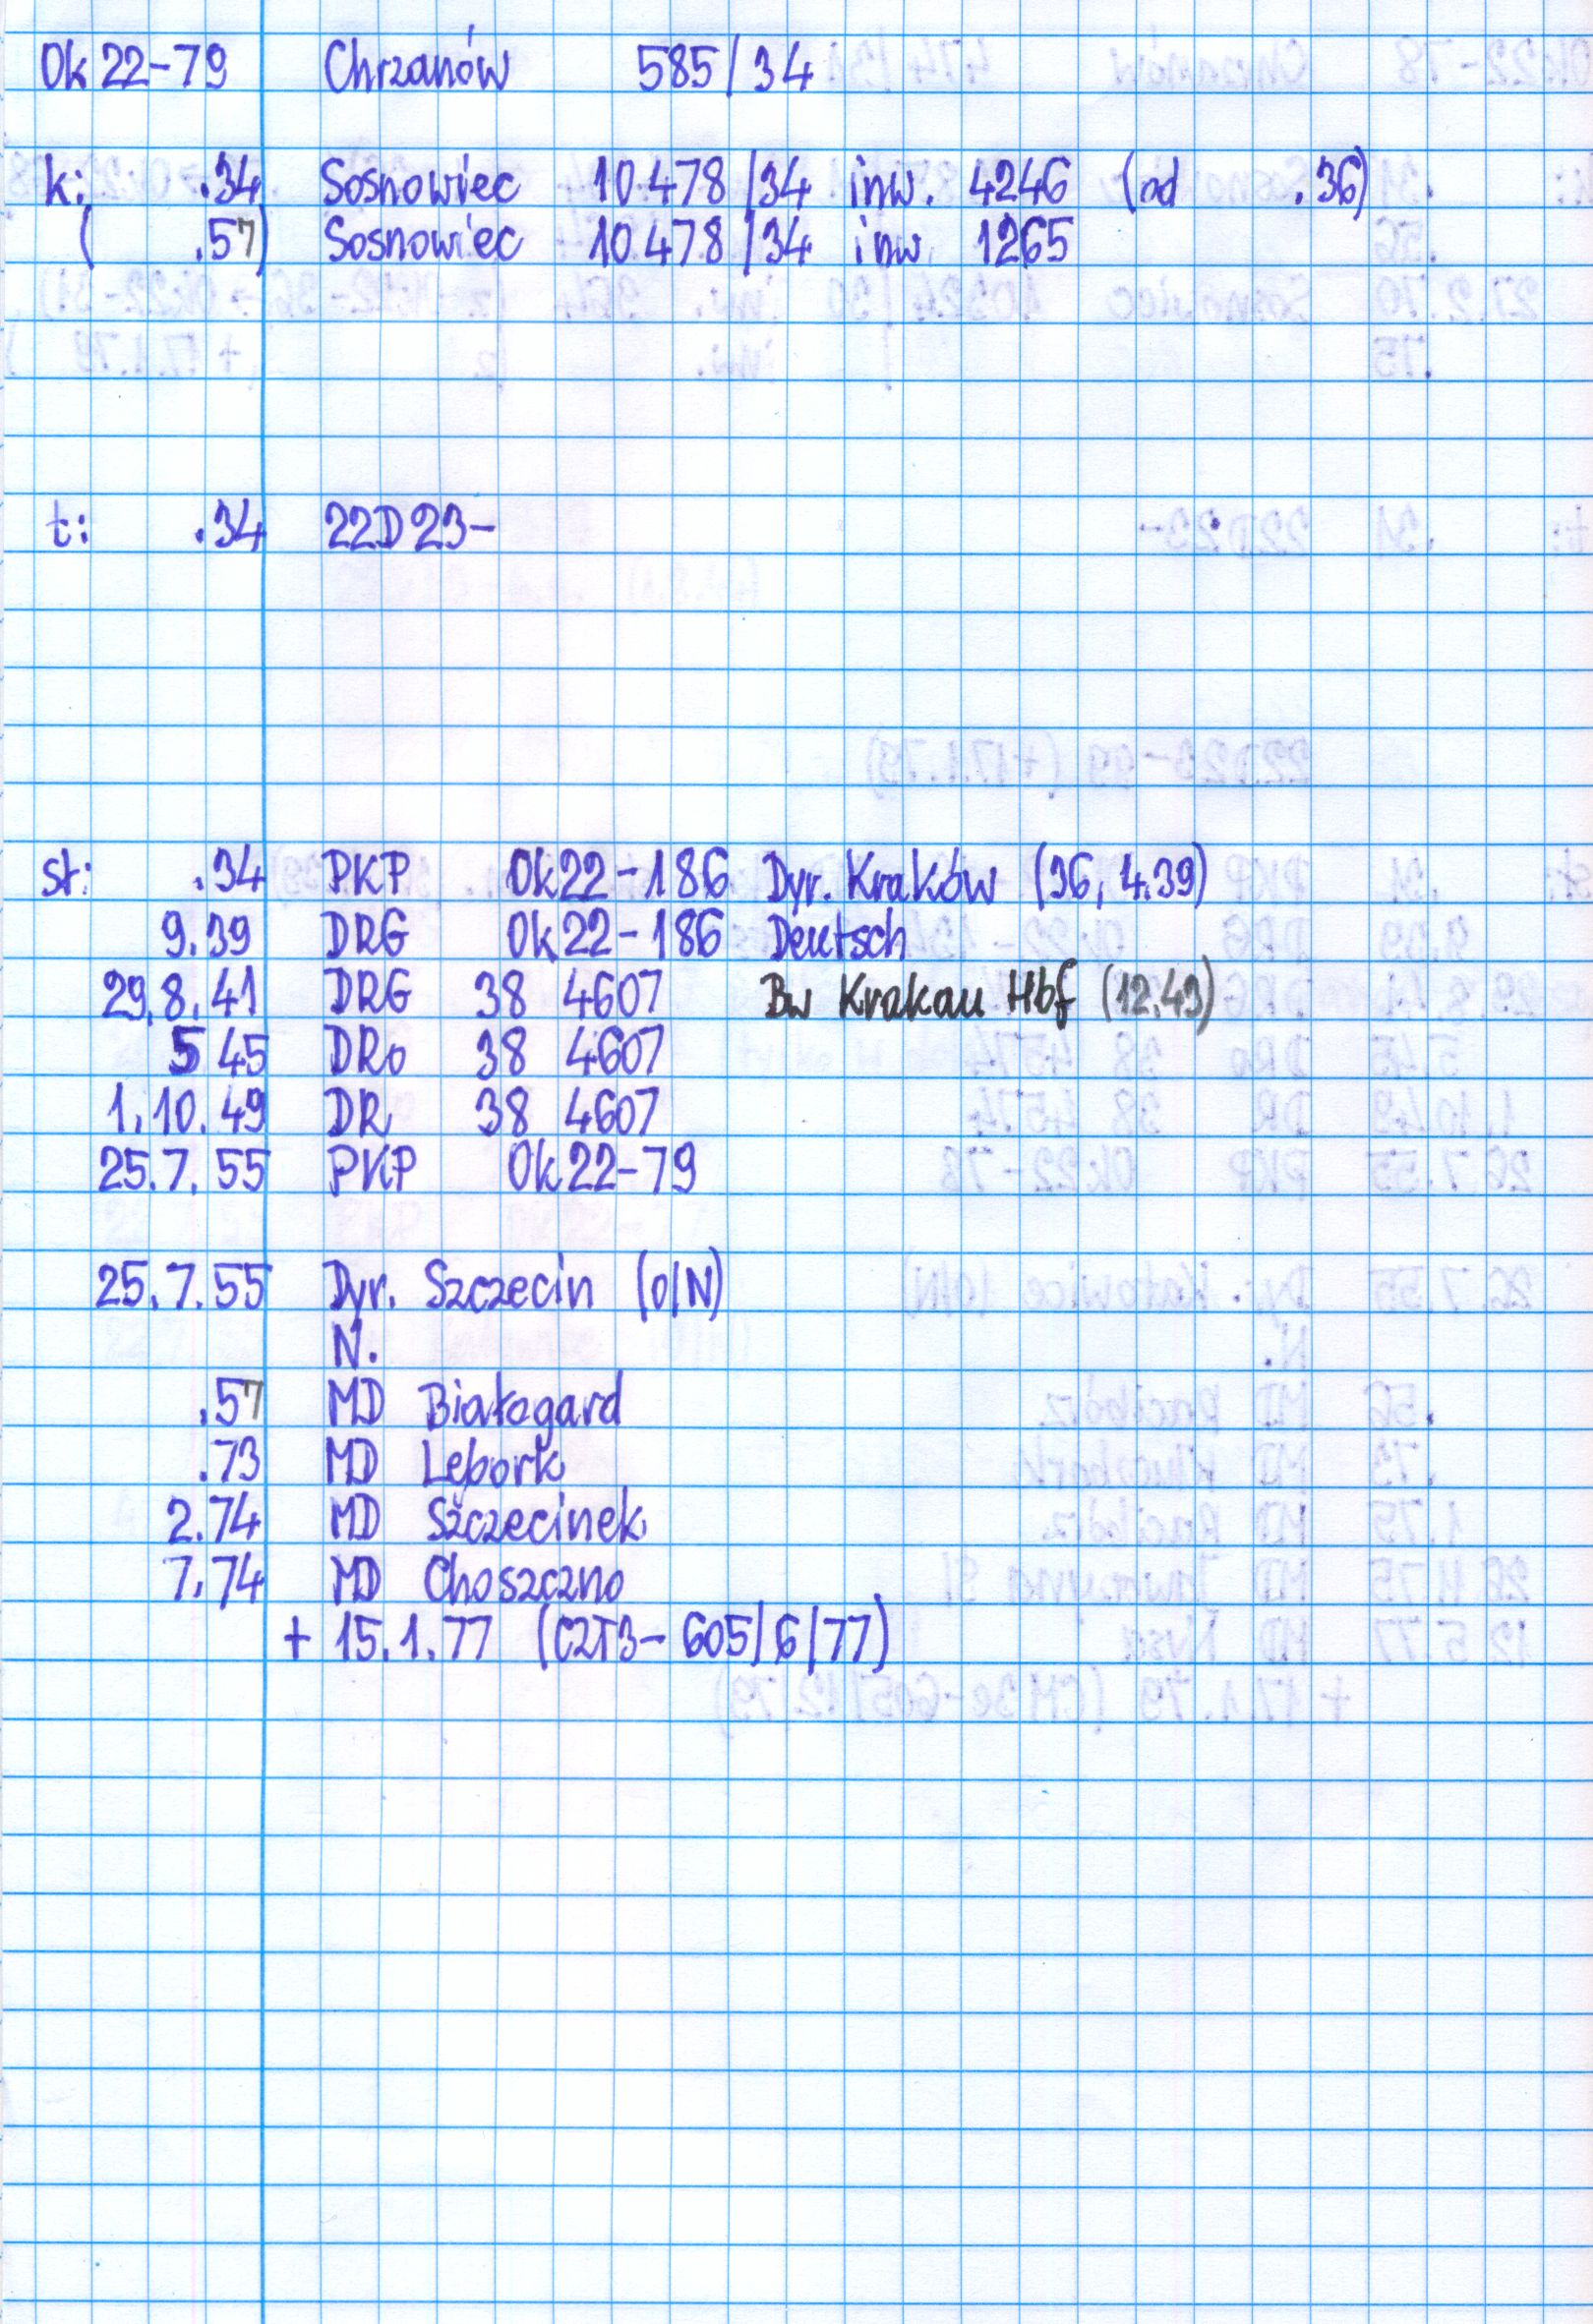 Ok22-79 Chrzanów 585/34
k: .34 Sosnowiec 10478/34 inw. 4246 (od .36)
( .57) Sosnowiec 10478/34 inw. 1265
t: .34 22D23-
st: .34 PKP Ok22-186 Dyr. Kraków (36, 4.39)
9.39 DRG Ok22-186 Deutsch
29.8.41 DRG 38 4607 Bw Krakau Hbf (12.43)
5 45 DRo 38 4607
1.10.49 DR 38 4607
25.7.55 PKP Ok22-79
25.7.55 Dyr. Szczecin (O/N)
N.
.57 MD Białogard
.73 MD Lębork
2.74 MD Szczecinek
7.74 MD Choszczno
+ 15.1.77 (CZT3-605/6/77)